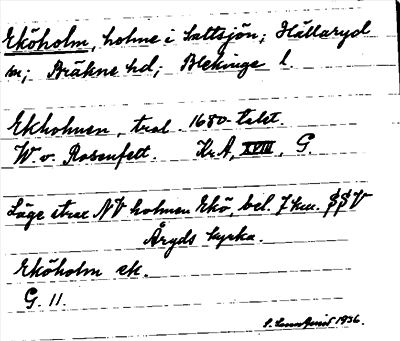 Eköholm, holme i Saltsjön; Hällaryd
sn; Bräkne hd; Blekinge l.
Ekholmen, trol. 1680-talet.
W. v. Rosenfelt. Kr.A, XVIII, G.
Läge strax NV holmen Ekö, bel. 7 km. SSV
Åryds kyrka.
Eköholm ek.
G. 11.
S. Lundquist 1936.